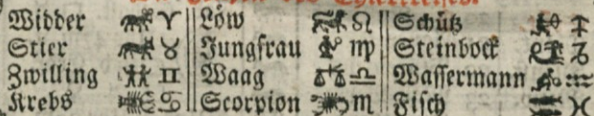 Widder ♈ Löw ♌ Schütz ♐
Stier ♉ Jungfrau ♍ Steinbock ♑
Zwilling ♊ Waag ♎ Wassermann ♒
Krebs ♋ Scorpion ♏ Fisch ♓